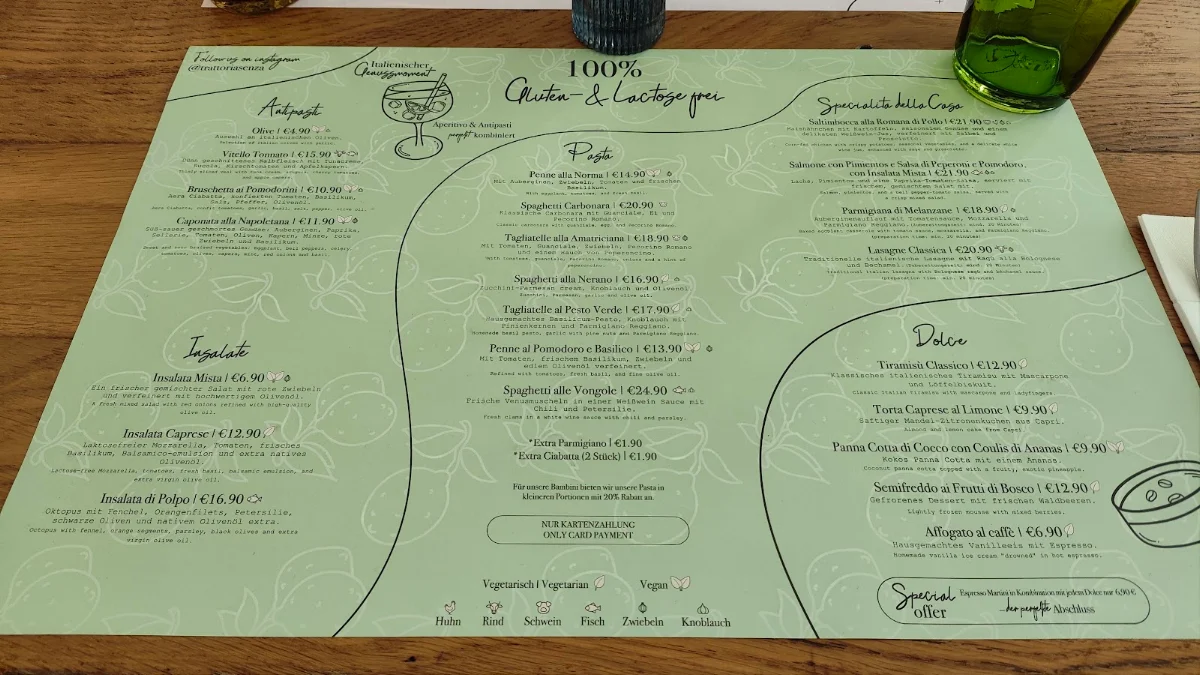 Follow us on instagram
@trattoriasenza
Italienischer
Genussmoment
Aperitivo & Antipasti
perfekt kombiniert
100%
Gluten- & Lactose frei
Antipasti
Olive | €4.90
Auswahl an italienischen Oliven.
Selection of Italian olives with garlic.
Vitello Tonnato | €15.90
Bruschetta ai Pomodorini | €10.90
Caponata alla Napoletana | €11.90
Süß-sauer geschmortes Gemüse: Auberginen, Paprika,
Sellerie, Tomaten, Oliven, Kapern, Minze, rote
Zwiebeln und Basilikum.
Insalate
Insalata Mista | €6.90
Ein frischer gemischter Salat mit rote Zwiebeln
und verfeinert mit hochwertigem Olivenöl.
A fresh mixed salad with red onions refined with high-quality
olive oil.
Insalata Caprese | €12.90
Laktosefreier Mozzarella, Tomaten, frisches
Basilikum, Balsamico-emulsion und extra natives
Olivenöl.
Lactose-free Mozzarella, tomatoes, fresh basil, balsamic emulsion, and
extra virgin olive oil.
Insalata di Polpo | €16.90
Oktopus mit Fenchel, Orangenfilets, Petersilie,
schwarze Oliven und nativem Olivenöl extra.
Octopus with fennel, orange segments, parsley, black olives and extra
virgin olive oil.
Pasta
Penne alla Norma | €14.90
Mit Auberginen, Zwiebeln, Tomaten und frischen
Basilikum.
With eggplant, onions, tomatoes, and fresh basil.
Spaghetti Carbonara | €20.90
Klassische Carbonara mit Guanciale, Ei und
Pecorino Romano.
Classic carbonara with guanciale, egg, and pecorino Romano.
Tagliatelle alla Amatriciana | €18.90
Mit Tomaten, Guanciale, Zwiebeln, Pecorino Romano
und einem Hauch von Peperoncino.
Spaghetti alla Nerano | €16.90
Zucchini-Parmesan cream, Knoblauch und Olivenöl
Zucchini, Parmesan, garlic and olive oil.
Tagliatelle al Pesto Verde | €17.90
Hausgemachtes Basilicum-Pesto, Knoblauch mit
Pinienkernen und Parmigiano Reggiano.
Homemade basil pesto, garlic with pine nuts and Parmigiano Reggiano.
Penne al Pomodoro e Basilico | €13.90
Mit Tomaten, frischem Basilikum, Zwiebeln und
edlem Olivenöl verfeinert.
Refined with tomatoes, fresh basil, and fine olive oil.
Spaghetti alle Vongole | €24.90
Frische Venusmuscheln in einer Weißwein Sauce mit
Chili und Petersilie.
Fresh clams in a white wine sauce with chili and parsley.
*Extra Parmigiano | €1.90
*Extra Ciabatta (2 Stück) | €1.90
Für unsere Bambini bieten wir unsere Pasta in
kleineren Portionen mit 20% Rabatt an.
NUR KARTENZAHLUNG
ONLY CARD PAYMENT
Vegetarisch | Vegetarian
Vegan
Huhn Rind Schwein Fisch Zwiebeln Knoblauch
Specialità della Casa
Saltimbocca alla Romana di Pollo | €21.90
Salmone con Pimentos e Salsa di Peperoni e Pomodoro,
con Insalata Mista | €21.90
Lachs, Pimentos und eine Paprika-Tomaten-Salsa, serviert mit
frischem, gemischtem Salat.
Parmigiana di Melanzane | €18.90
Auberginenauflauf mit Tomatensauce, Mozzarella und
Lasagne Classica | €20.90
Traditionelle italienische Lasagne mit Ragù alla Bolognese
Traditional Italian lasagna with Bolognese ragù and béchamel sauce.
Dolce
Tiramisù Classico | €12.90
Klassisches italienisches Tiramisu mit Mascarpone
und Löffelbiskuit.
Classic Italian tiramisu with mascarpone and ladyfingers.
Torta Caprese al Limone | €9.90
Saftiger Mandel-Zitronenkuchen aus Capri.
Almond and lemon cake from Capri.
Panna Cotta di Cocco con Coulis di Ananas | €9.90
Kokos Panna Cotta mit einem Ananas.
Coconut panna cotta topped with a fruity, exotic pineapple.
Semifreddo ai Frutti di Bosco | €12.90
Gefrorenes Dessert mit frischen Waldbeeren.
Lightly frozen mousse with mixed berries.
Affogato al caffè | €6.90
Hausgemachtes Vanilleeis mit Espresso.
Homemade vanilla ice cream "drowned" in hot espresso.
Special offer
Espresso Martini in Kombination mit jedem Dolce nur 6,90 €
der perfekte Abschluss